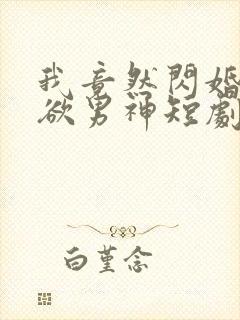 我竟然閃婚
欲男神短劇
白堇念